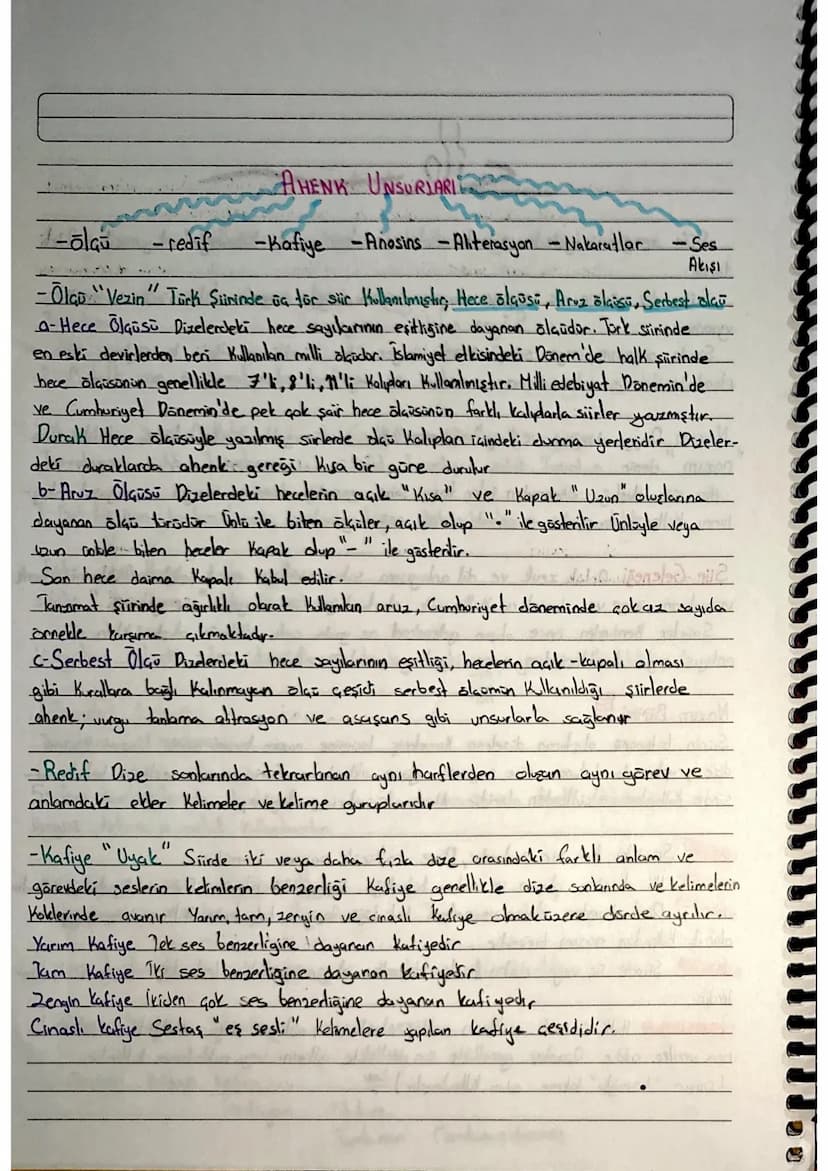 AHENK UNSURLARI
-Ölçü -redif -Kafiye -Anosins -Aliterasyon -Nakaratlar -Ses
Akışı
-Ölçü "Vezin" Türk Şiirinde üç tür şiir Kullanılmıştır; Hece ölçüsü, Aruz ölçüsü, Serbest ölçü
a-Hece Ölçüsü Dizelerdeki hece sayılarının eşitliğine dayanan ölçüdür. Türk şiirinde
en eski devirlerden beri Kullanılan milli ölçüdür. İslamiyet etkisindeki Dönem'de halk şiirinde
hece ölçüsünün genellikle 7'li, 8'li, 11'li Kalıpları Kullanılmıştır. Milli edebiyat Dönemin'de
ve Cumhuriyet Dönemin'de pek çok şair hece ölçüsünün farklı kalıplarla şiirler yazmıştır.
Durak Hece ölçüsüyle yazılmış şiirlerde ölçü Kalıpları içindeki durma yerleridir Dizeler-
deki duraklarda ahenk gereği Kısa bir süre durulur
b-Aruz Ölçüsü Dizelerdeki hecelerin açık "Kısa" ve Kapalı "Uzun" oluşlarına
dayanan ölçü türüdür Ünlü ile biten ölçüler, açık olup "." ile gösterilir Ünlüyle veya
uzun ünlüle biten heceler Kapalı olup "-" ile gösterilir.
Son hece daima Kapalı Kabul edilir.
Tanzimat şiirinde ağırlıklı olarak Kullanılan aruz, Cumhuriyet döneminde çok az sayıda
örnekle karşıma çıkmaktadır.
c-Serbest Ölçü Dizelerdeki hece sayılarının eşitliği, hecelerin açık-kapalı olması
gibi Kurallara bağlı Kalınmayan ölçü çeşidi serbest ölçünün Kullanıldığı şiirlerde
ahenk; vurgu tonlama altrasyon ve asaşans gibi unsurlarla sağlanır
-Redif Dize sonlarında tekrarlanan aynı harflerden oluşan aynı görev ve
anlamdaki ekler Kelimeler ve kelime guruplarıdır
-Kafiye "Uyak" Şiirde iki veya daha fazla dize arasındaki farklı anlam ve
görevdeki seslerin kelimlerin benzerliği Kafiye genellikle dize sonlarında ve kelimelerin
Köklerinde aranır Yarım, tam, zengin ve cinaslı Kafiye olmak üzere dörde ayrılır.
Yarım Kafiye Tek ses benzerligine dayanan kafiyedir
Tam Kafiye İki ses benzerligine dayanan kafiyedir
Zengin Kafiye İkiden çok ses benzerliğine dayanan kafiyedir
Cinaslı Kafiye Sestaş "eş sesli" Kelimelere yapılan kafiye çeşididir.